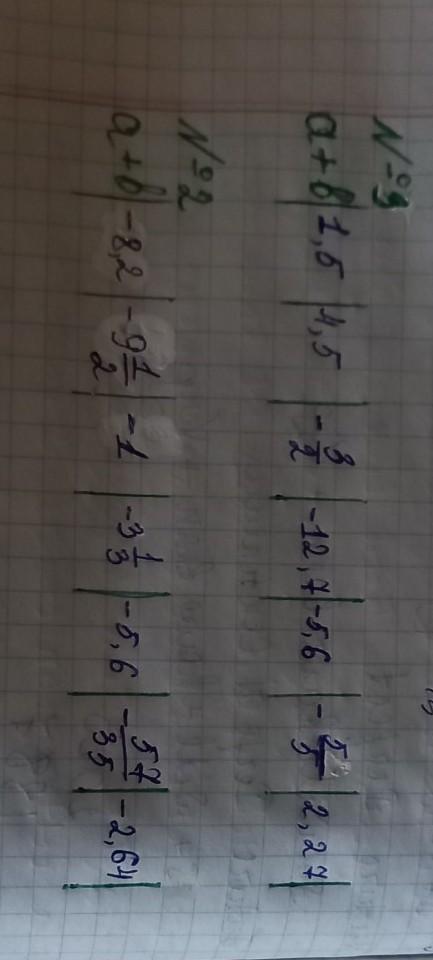 №3
a+b | 1,5 | 4,5 | -3/2 | -12,7 | -5,6 | - | 2,27 |
№2
a+b | -8,2 | -9 1/2 | -1 | -3 1/3 | -5,6 | -57/35 | -2,64 |